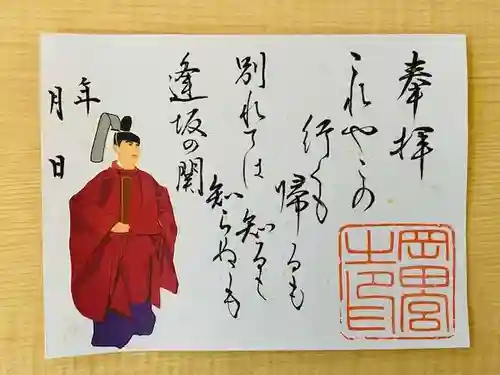 奉拝
これやこの
行くも
帰るも
別れては
知るも
知らぬも
逢坂の関
年
月
日
岡田宮
之印